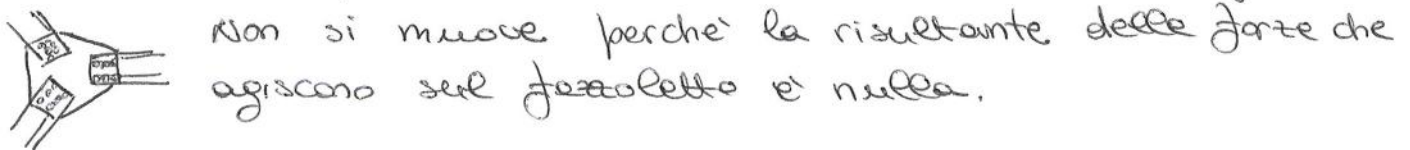 Non si muove perchè la risultante delle forze che
agiscono sul fazzoletto è nulla.